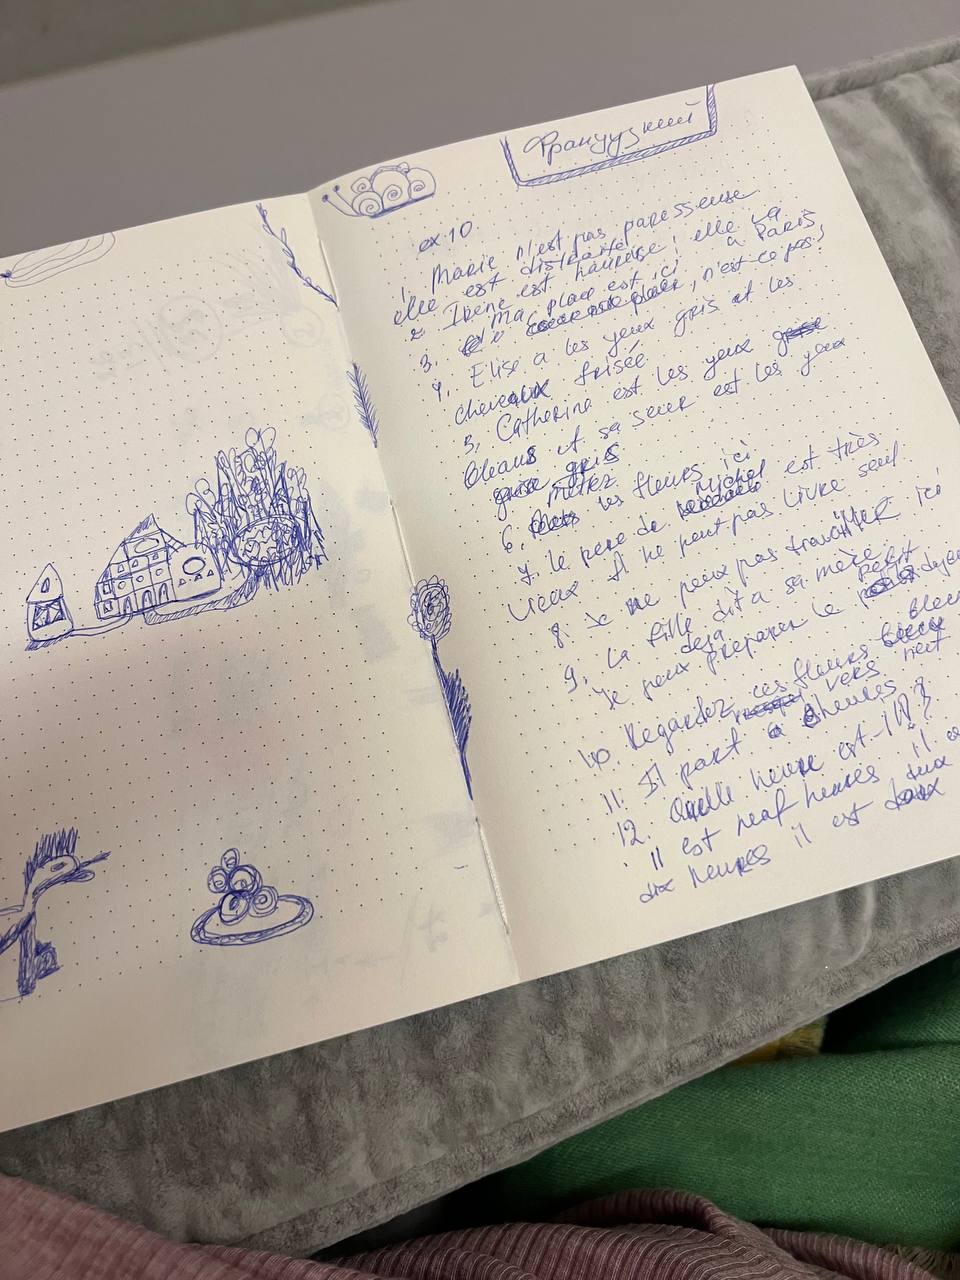 Французский
ex 10
1. Marie n'est pas paresseuse
elle est distraite
2. Irène est haureuse! elle va
à Paris
3. Ma place est ici
n'est-ce pas?
4. Elise a les yeux gris et les
cheveaux frisée
5. Catherina est les yeux
bleaus et sa seuer est les yeux
gris
6. metez les fleurs ici
7. le pere de Michel est très
vieux Il ne peut pas livre seul.
8. Je ne peux pas travailler ici
9. La fille dit a sa mère:
Je peux deja preparer le petit
10. Regardez ces fleurs bleu
11. Il part vers neuf
heures
12. Quelle heure est-il?
Il est neaf heures il
dix heures il est deux